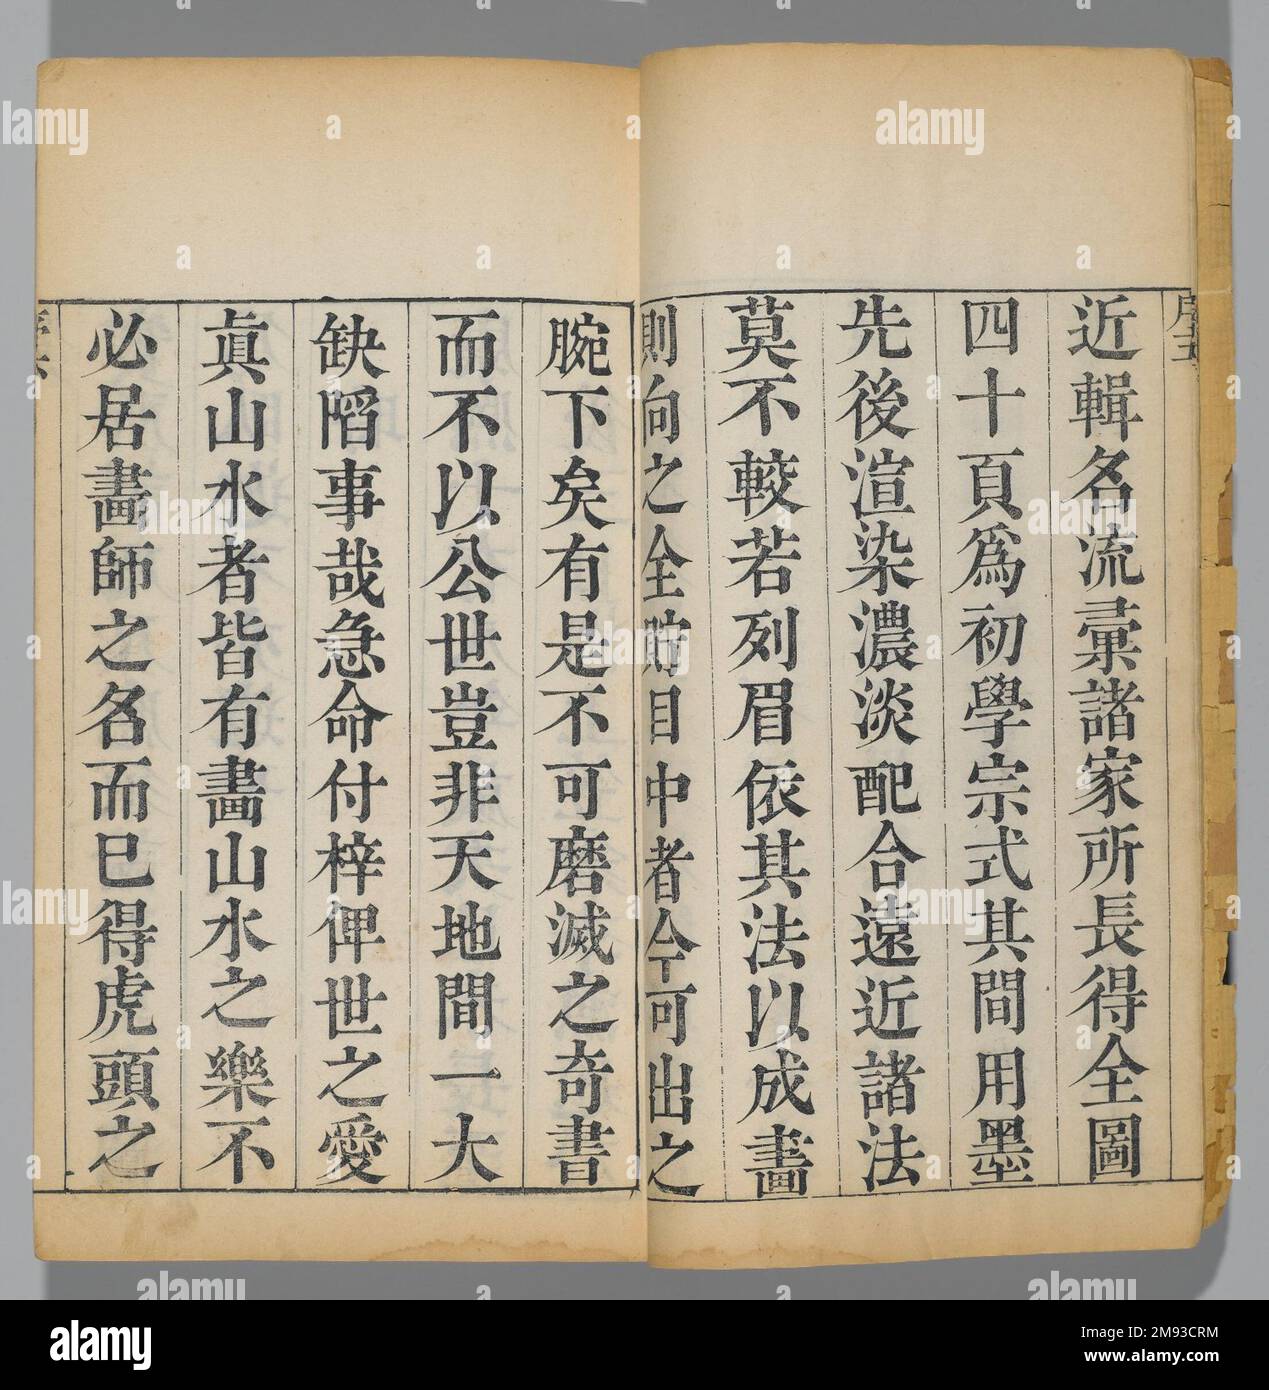 序五
近輯名流彙諸家所長得全圖
四十頁爲初學宗式其間用墨
先後渲染濃淡配合遠近諸法
莫不較若列眉依其法以成畵
則向之全貯目中者今可出之
腕下矣有是不可磨滅之奇書
而不以公世豈非天地間一大
缺陷事哉急命付梓俾世之愛
眞山水者皆有畵山水之樂不
必居畵師之名而已得虎頭之
序六
alamy
Image ID: 2M93CRM
www.alamy.com